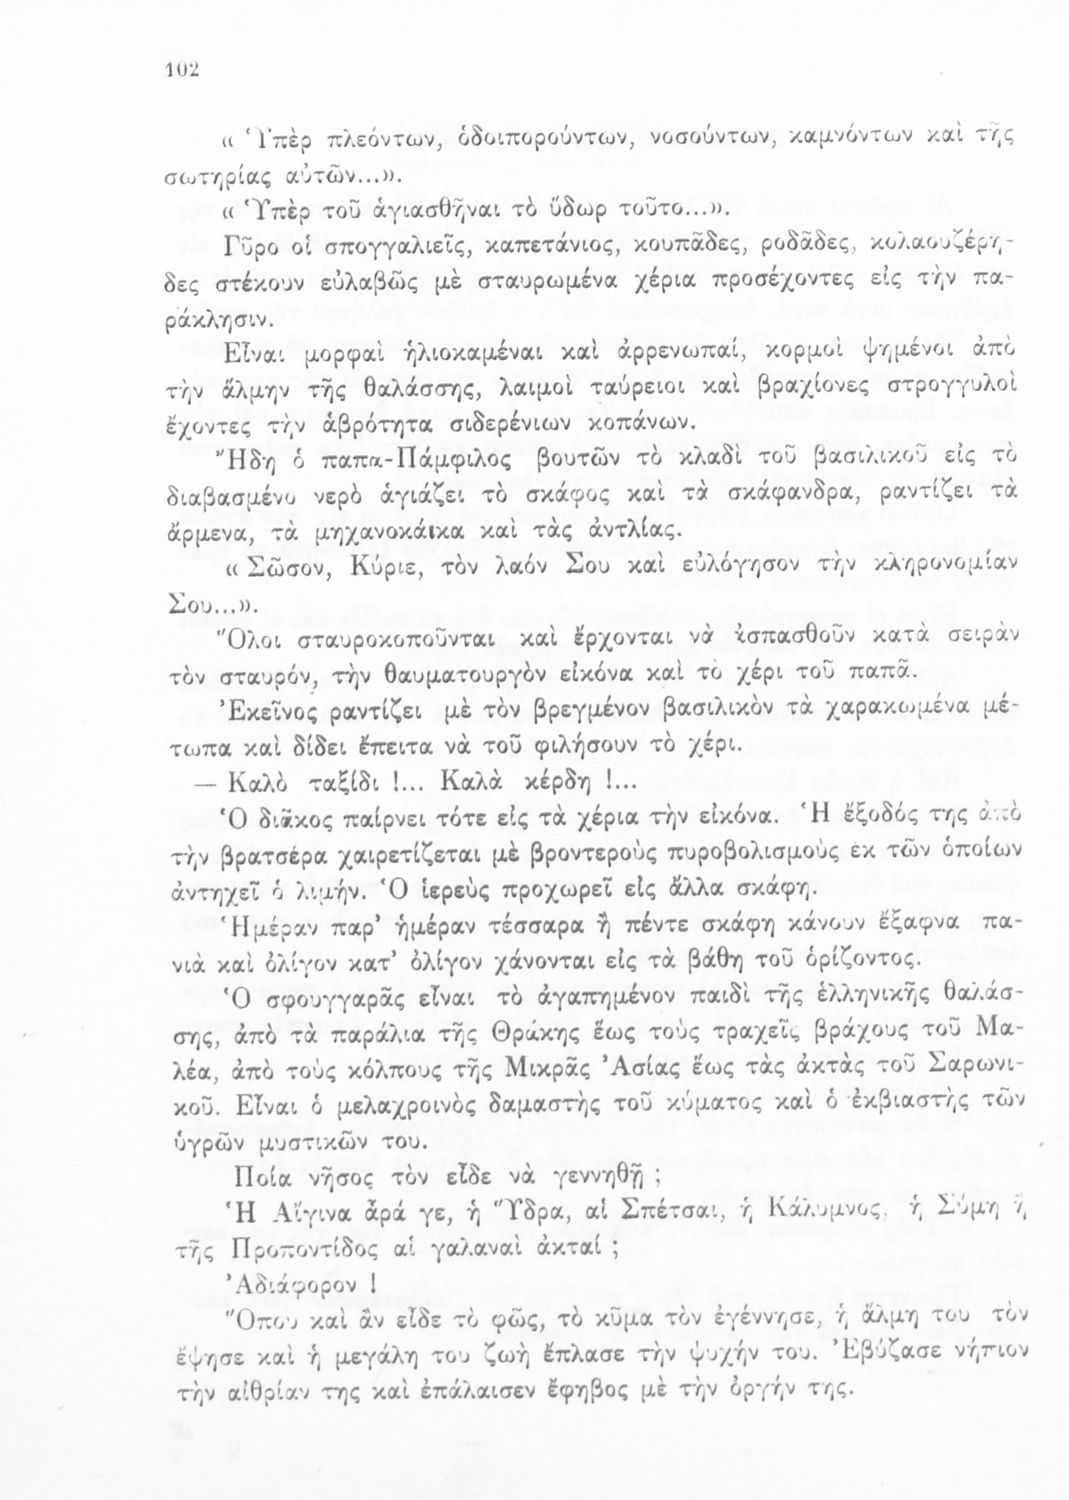 102
« Ὑπὲρ πλεόντων, ὁδοιπορούντων, νοσούντων, καμνόντων καὶ τῆς
σωτηρίας αὐτῶν...».
« Ὑπὲρ τοῦ ἁγιασθῆναι τὸ ὕδωρ τοῦτο...».
Γῦρο οἱ σπογγαλιεῖς, καπετάνιος, κουπᾶδες, ροδᾶδες, κολαουζέρη-
δες στέκουν εὐλαβῶς μὲ σταυρωμένα χέρια προσέχοντες εἰς τὴν πα-
ράκλησιν.
Εἶναι μορφαὶ ἡλιοκαμέναι καὶ ἀρρενωπαί, κορμοὶ ψημένοι ἀπὸ
τὴν ἅλμην τῆς θαλάσσης, λαιμοὶ ταύρειοι καὶ βραχίονες στρογγυλοὶ
ἔχοντες τὴν ἁβρότητα σιδερένιων κοπάνων.
Ἤδη ὁ παπα-Πάμφιλος βουτῶν τὸ κλαδὶ τοῦ βασιλικοῦ εἰς τὸ
διαβασμένο νερὸ ἁγιάζει τὸ σκάφος καὶ τὰ σκάφανδρα, ραντίζει τὰ
ἄρμενα, τὰ μηχανοκάικα καὶ τὰς ἀντλίας.
« Σῶσον, Κύριε, τὸν λαόν Σου καὶ εὐλόγησον τὴν κληρονομίαν
Σου...».
Ὅλοι σταυροκοποῦνται καὶ ἔρχονται νὰ ἀσπασθοῦν κατὰ σειρὰν
τὸν σταυρόν, τὴν θαυματουργὸν εἰκόνα καὶ τὸ χέρι τοῦ παπᾶ.
Ἐκεῖνος ραντίζει μὲ τὸν βρεγμένον βασιλικὸν τὰ χαρακωμένα μέ-
τωπα καὶ δίδει ἔπειτα νὰ τοῦ φιλήσουν τὸ χέρι.
— Καλὸ ταξίδι !... Καλὰ κέρδη !...
Ὁ διᾶκος παίρνει τότε εἰς τὰ χέρια τὴν εἰκόνα. Ἡ ἔξοδός της ἀπὸ
τὴν βρατσέρα χαιρετίζεται μὲ βροντεροὺς πυροβολισμοὺς ἐκ τῶν ὁποίων
ἀντηχεῖ ὁ λιμήν. Ὁ ἱερεὺς προχωρεῖ εἰς ἄλλα σκάφη.
Ἡμέραν παρ’ ἡμέραν τέσσαρα ἢ πέντε σκάφη κάνουν ἔξαφνα πα-
νιὰ καὶ ὀλίγον κατ’ ὀλίγον χάνονται εἰς τὰ βάθη τοῦ ὁρίζοντος.
Ὁ σφουγγαρᾶς εἶναι τὸ ἀγαπημένον παιδὶ τῆς ἑλληνικῆς θαλάσ-
σης, ἀπὸ τὰ παράλια τῆς Θράκης ἕως τοὺς τραχεῖς βράχους τοῦ Μα-
λέα, ἀπὸ τοὺς κόλπους τῆς Μικρᾶς Ἀσίας ἕως τὰς ἀκτὰς τοῦ Σαρωνι-
κοῦ. Εἶναι ὁ μελαχροινὸς δαμαστὴς τοῦ κύματος καὶ ὁ ἐκβιαστὴς τῶν
ὑγρῶν μυστικῶν του.
Ποία νῆσος τὸν εἶδε νὰ γεννηθῇ ;
Ἡ Αἴγινα ἆρά γε, ἡ Ὕδρα, αἱ Σπέτσαι, ἡ Κάλυμνος, ἡ Σύμη ἢ
τῆς Προποντίδος αἱ γαλαναὶ ἀκταί ;
Ἀδιάφορον !
Ὅπου καὶ ἂν εἶδε τὸ φῶς, τὸ κῦμα τὸν ἐγέννησε, ἡ ἅλμη του τὸν
ἔψησε καὶ ἡ μεγάλη του ζωὴ ἔπλασε τὴν ψυχήν του. Ἐβύζασε νήπιον
τὴν αἰθρίαν της καὶ ἐπάλαισεν ἔφηβος μὲ τὴν ὀργήν της.